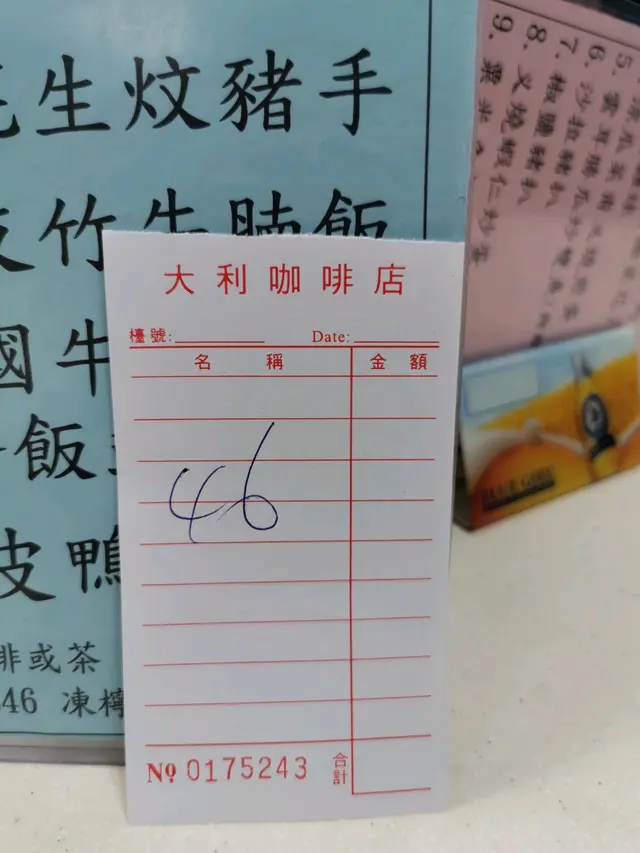 生炆豬手
竹牛腩飯
國牛
飯
皮鴨
啡或茶
46 凍檸
大利咖啡店
檯號: Date:
名稱 金額
46
№ 0175243 合計
5.
6. 沙拉豬扒
7. 椒鹽豬扒
8. 叉燒蝦仁炒蛋
9. 粟米